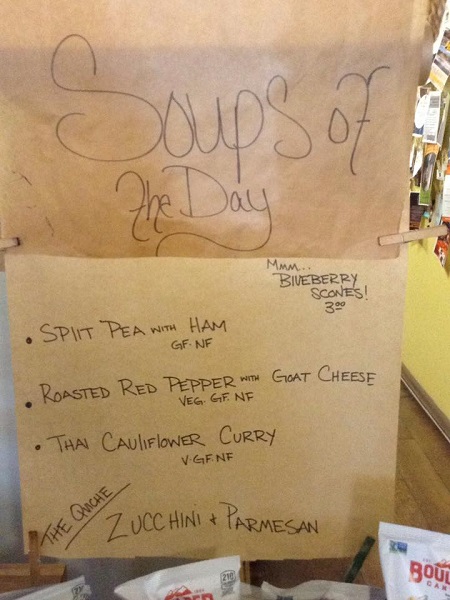 Soups of
The Day
Mmm...
BlUEBERRY
SCONES!
3.00
• SPlIT PEA WITH HAM
GF. NF
• ROASTED RED PEPPER WITH GOAT CHEESE
VEG. GF. NF
• THAI CAUlIFLOWER CURRY
V. GF. NF
THE QUICHE
ZUCCHINI + PARMESAN
BOUL
CAN
210